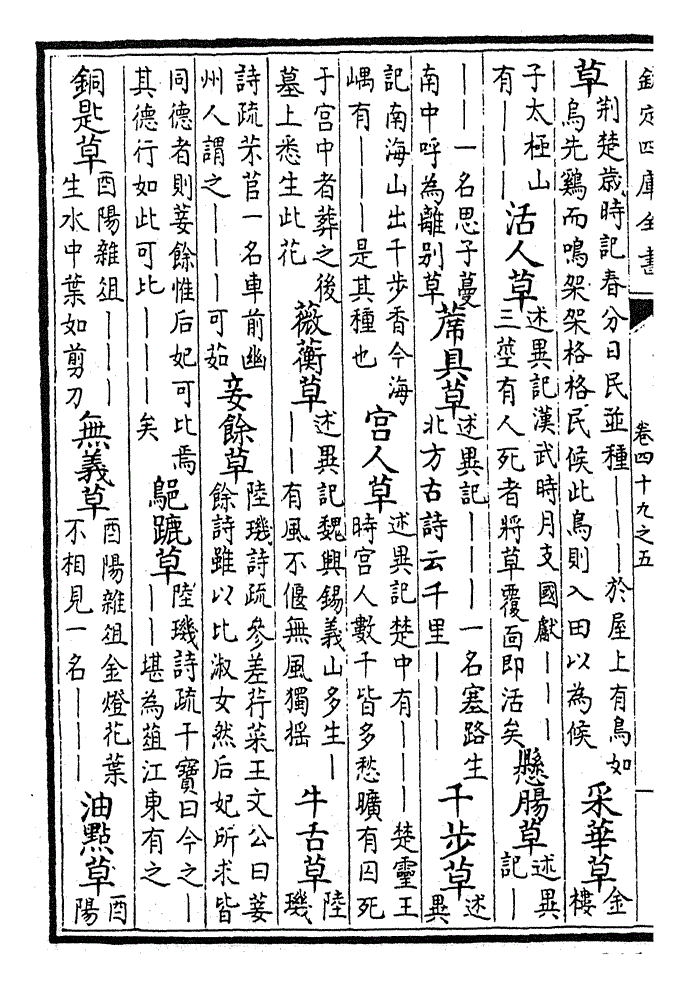 欽定四庫全書 卷四十九之五
草 荆楚歲時記春分日民並種｜｜於屋上有鳥如 烏先鷄而鳴架架格格民候此鳥則入田以為候 采華草 金 樓
子太極山 有｜｜｜ 活人草 述異記漢武時月支國獻｜｜｜ 三莖有人死者將草覆面即活矣 懸腸草 述異 記｜
｜｜一名思子蔓 南中呼為離别草 蓆具草 述異記｜｜｜一名塞路生 北方古詩云千里｜｜｜ 千步草 述 異
記南海山出千步香今海 嵎有｜｜｜是其種也 宫人草 述異記楚中有｜｜｜楚靈王 時宫人數千皆多愁曠有囚死
于宫中者葬之後 墓上悉生此花 薇蘅草 述異記魏興錫義山多生｜ ｜｜有風不偃無風獨揺 牛舌草 陸 璣
詩疏芣苢一名車前幽 州人謂之｜｜｜可茹 妾餘草 陸璣詩疏參差荇菜王文公曰荽 餘詩雖以比淑女然后妃所求皆
同德者則荽餘惟后妃可比焉 其德行如此可比｜｜｜矣 草 陸璣詩疏干寳曰今之｜ ｜｜堪為葅江東有之
銅匙草 酉陽雜俎｜｜｜ 生水中葉如剪刀 無義草 酉陽雜俎金燈花葉 不相見一名｜｜｜ 油點草 酉 陽